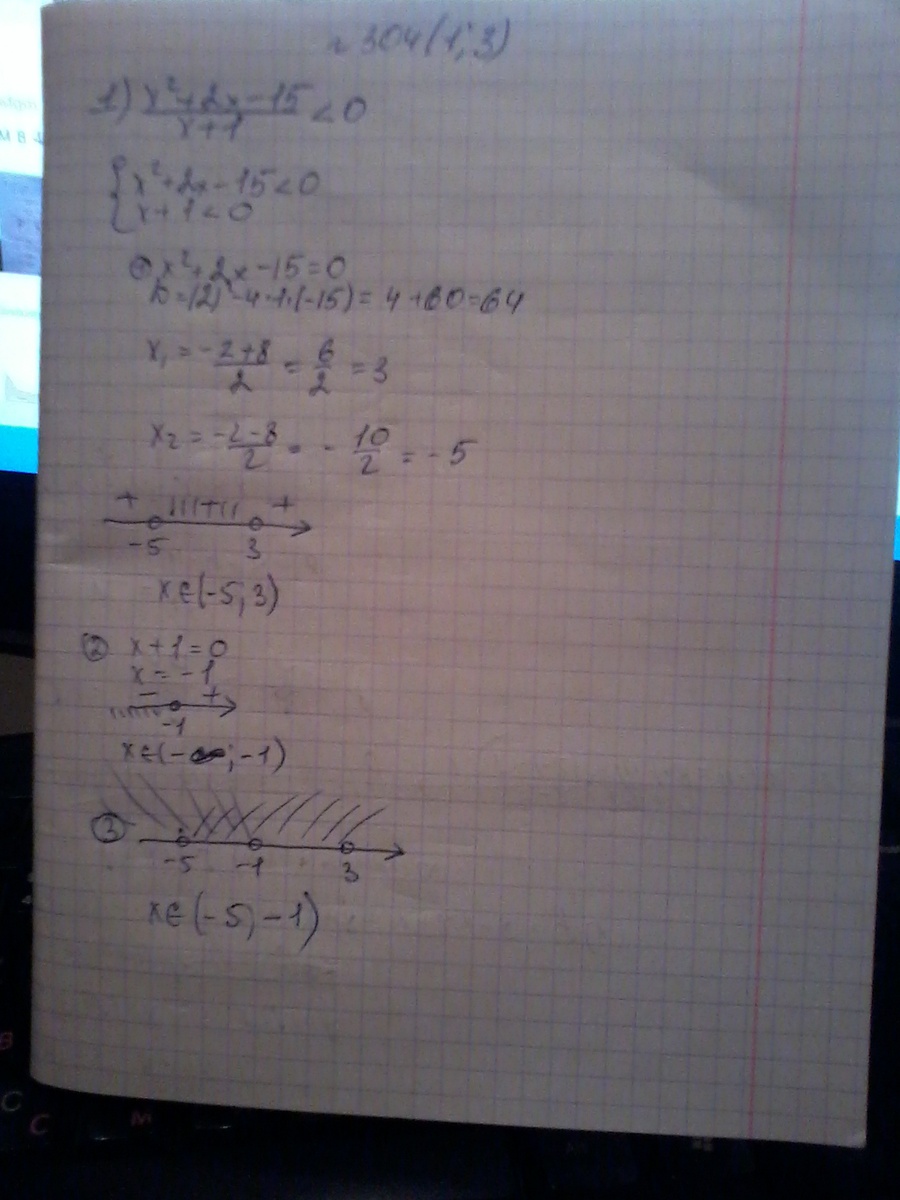 № 304 (1; 3)
1) x²+2x-15 / x+1 < 0
{ x²+2x-15<0
{ x+1<0
① x²+2x-15=0
D=(2)²-4·1·(-15)= 4+60=64
x₁ = -2+8 / 2 = 6 / 2 = 3
x₂ = -2-8 / 2 = - 10 / 2 = -5
+ +
-5 3
x∈(-5; 3)
② x+1=0
x=-1
- +
-1
x∈(-∞; -1)
③
-5 -1 3
x∈(-5; -1)